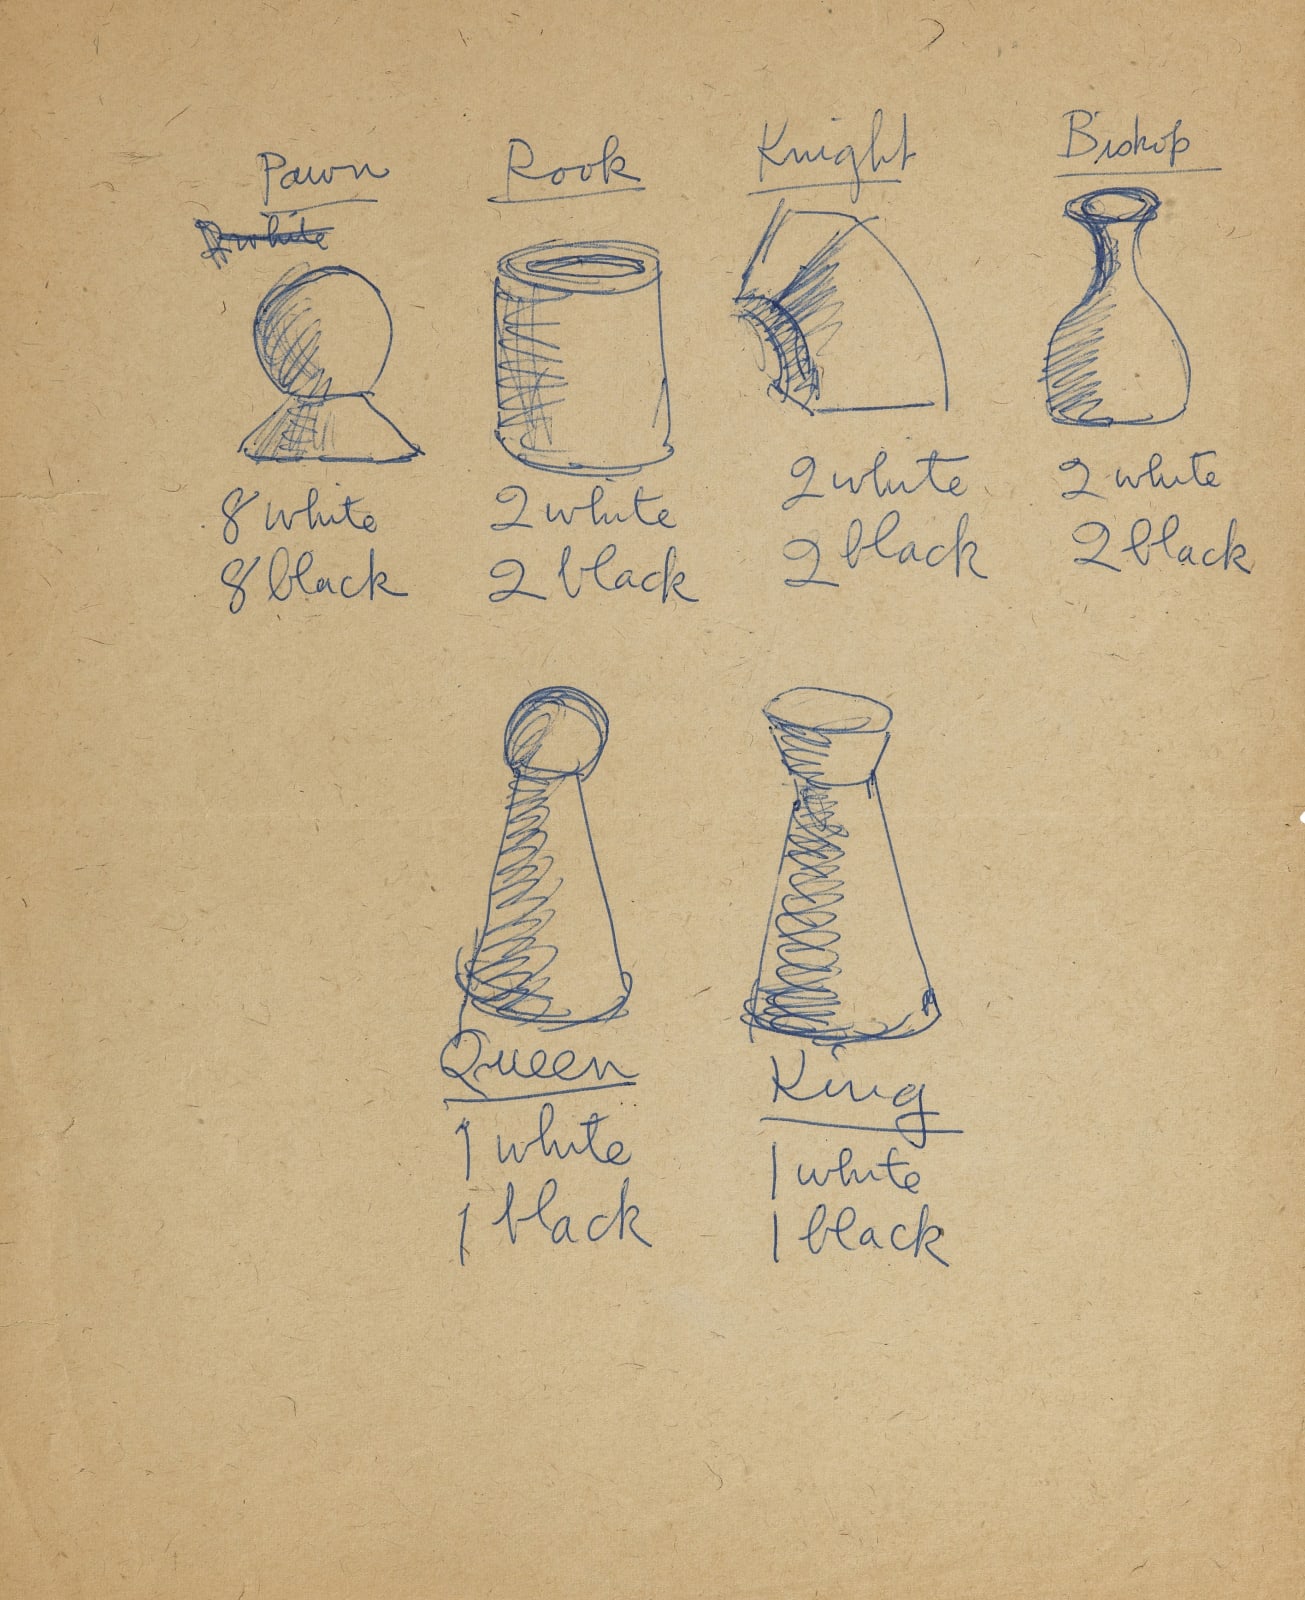 Pawn
Rook
Knight
Bishop
white
8 white
8 black
2 white
2 black
2 white
2 black
2 white
2 black
Queen
1 white
1 black
King
1 white
1 black